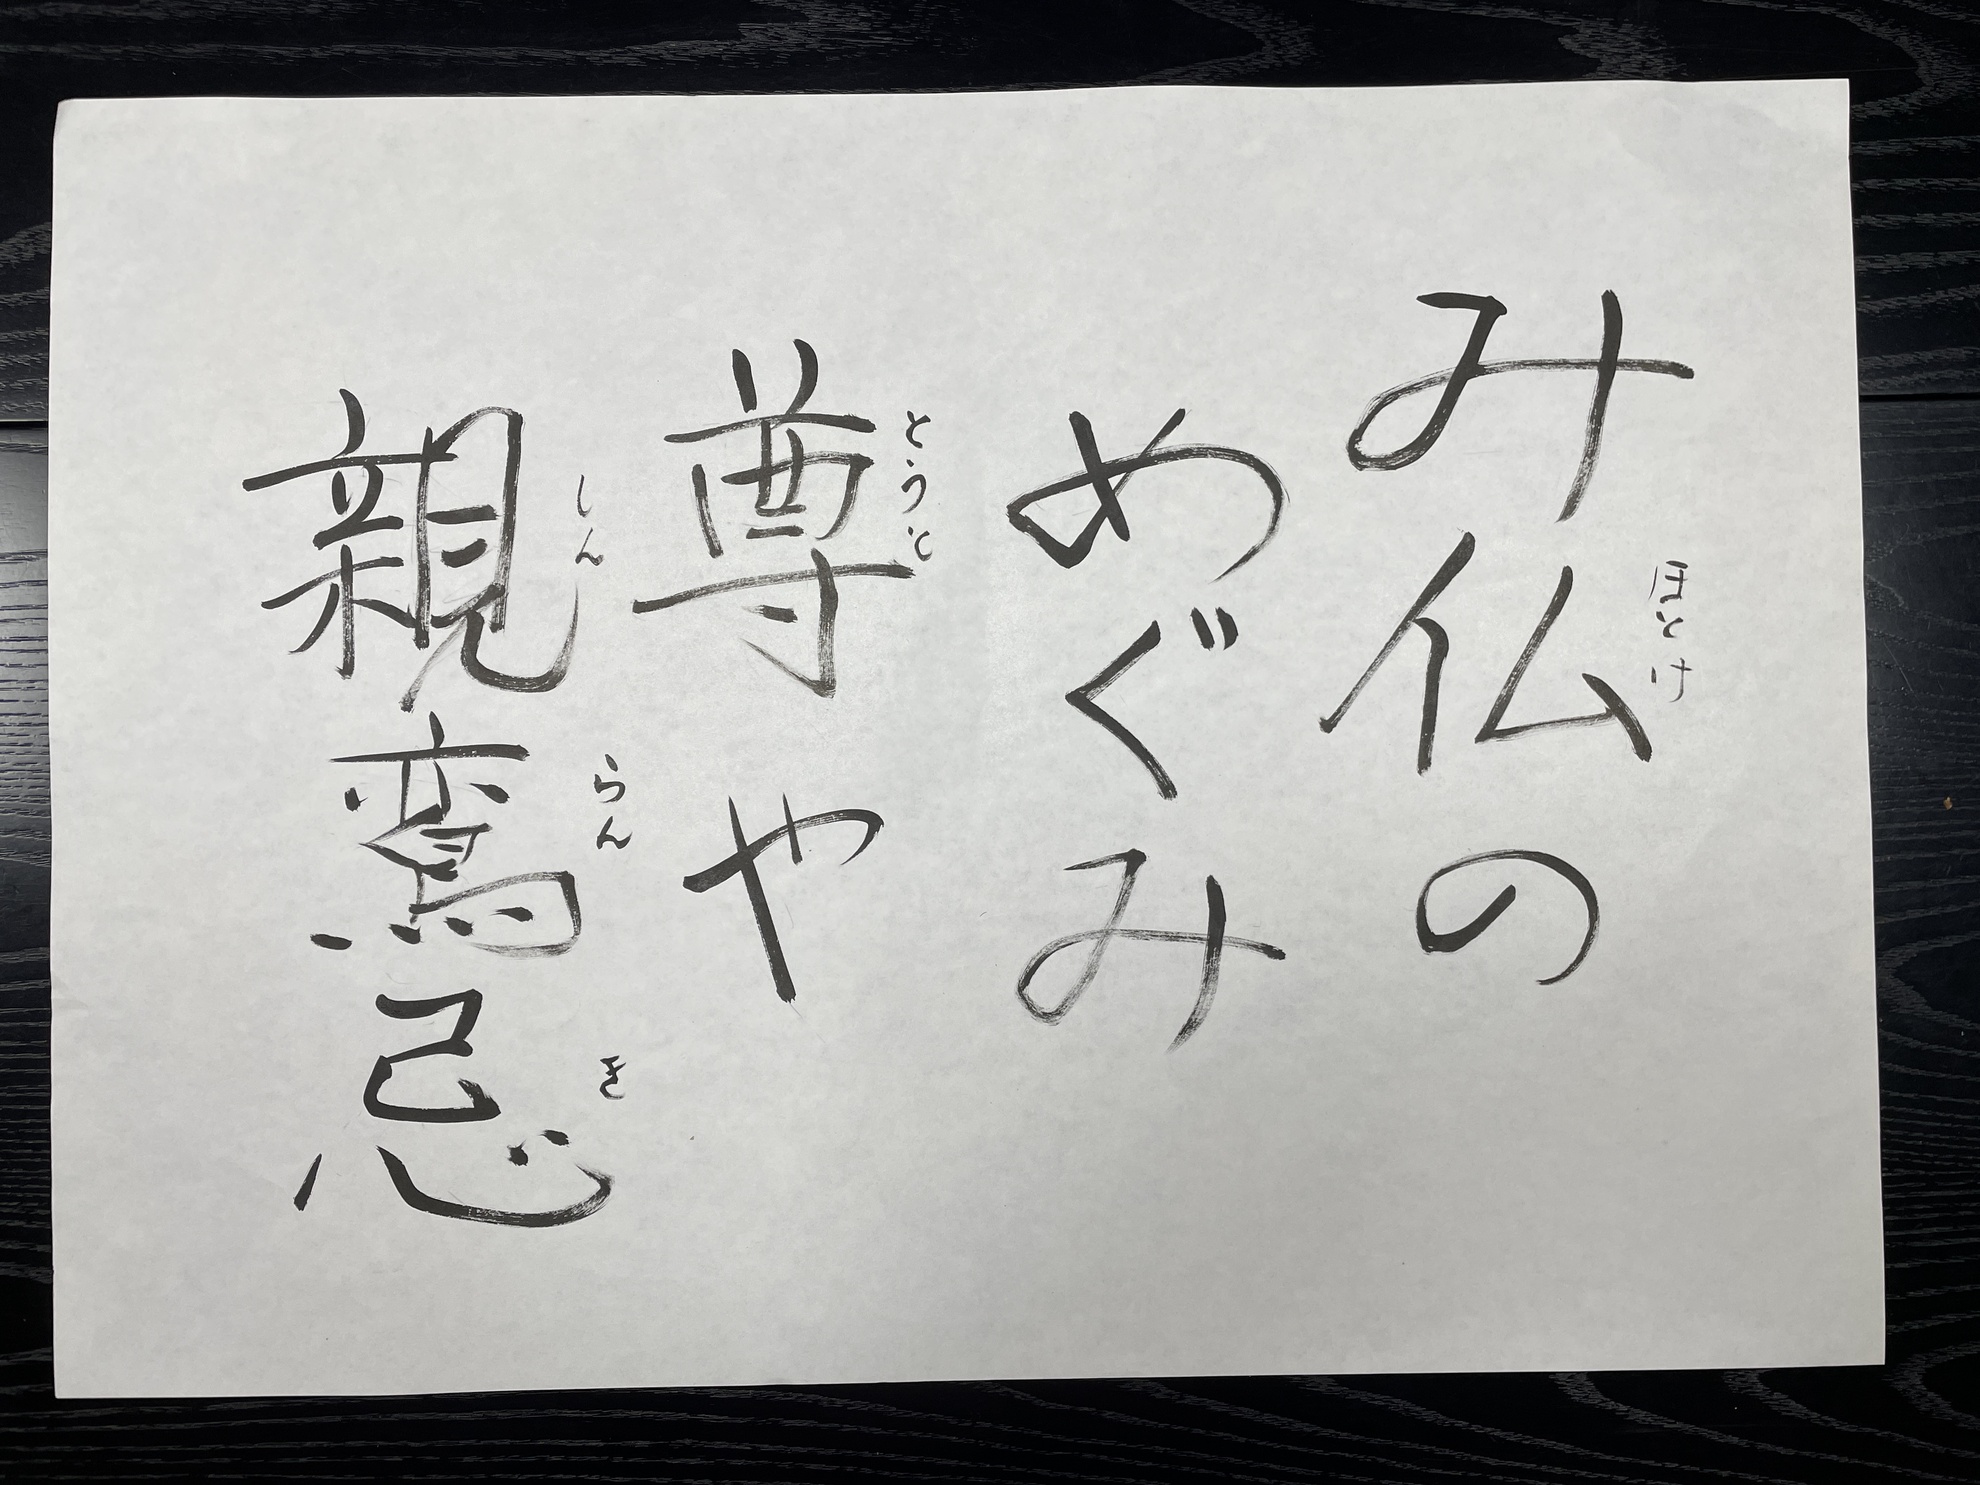 み仏の
ほとけ
めぐみ
尊や
とうと
親鸞忌
しんらんき